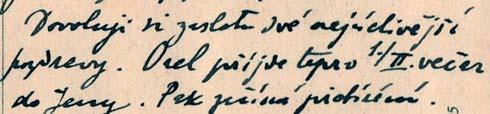 Dovoluji si zaslati své nejsrdečnější
pozdravy. Orel přijde teprv 1./II. večer
do Jeny. Pak